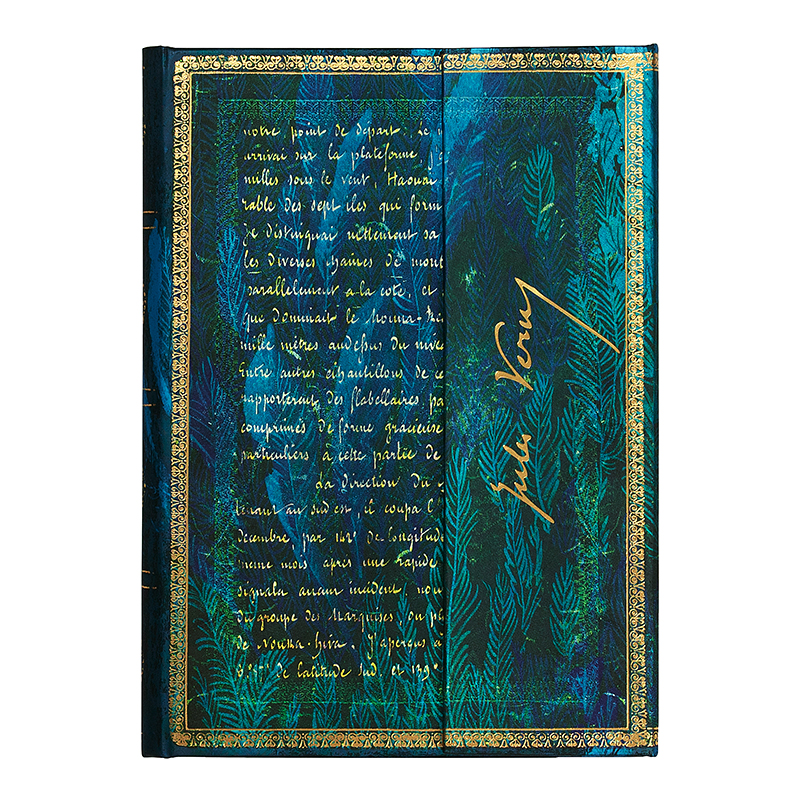 notre point de départ. Le
arrivai sur la plateforme,
milles sous le vent, Haouai
rable des sept iles qui form
Je distinguai nettement sa
les diverses chaines de mont
parallelement a la cote, et
que dominait le Mouna-
mille mètres audessus du nive
Entre autres échantillons de ce
rapporterent des flabellaires, pa
comprimés de forme gracieuse
particuliers à cette partie de
La direction du
tenant au sud est, il coupa l'
décembre, par 142° de longitude
meme mois après une rapide
signala aucun incident, nou
du groupe des Marquises, ou
de Nouka-hiva. J'aperçus a
8°57' de latitude sud. et 139°
Jules Verne